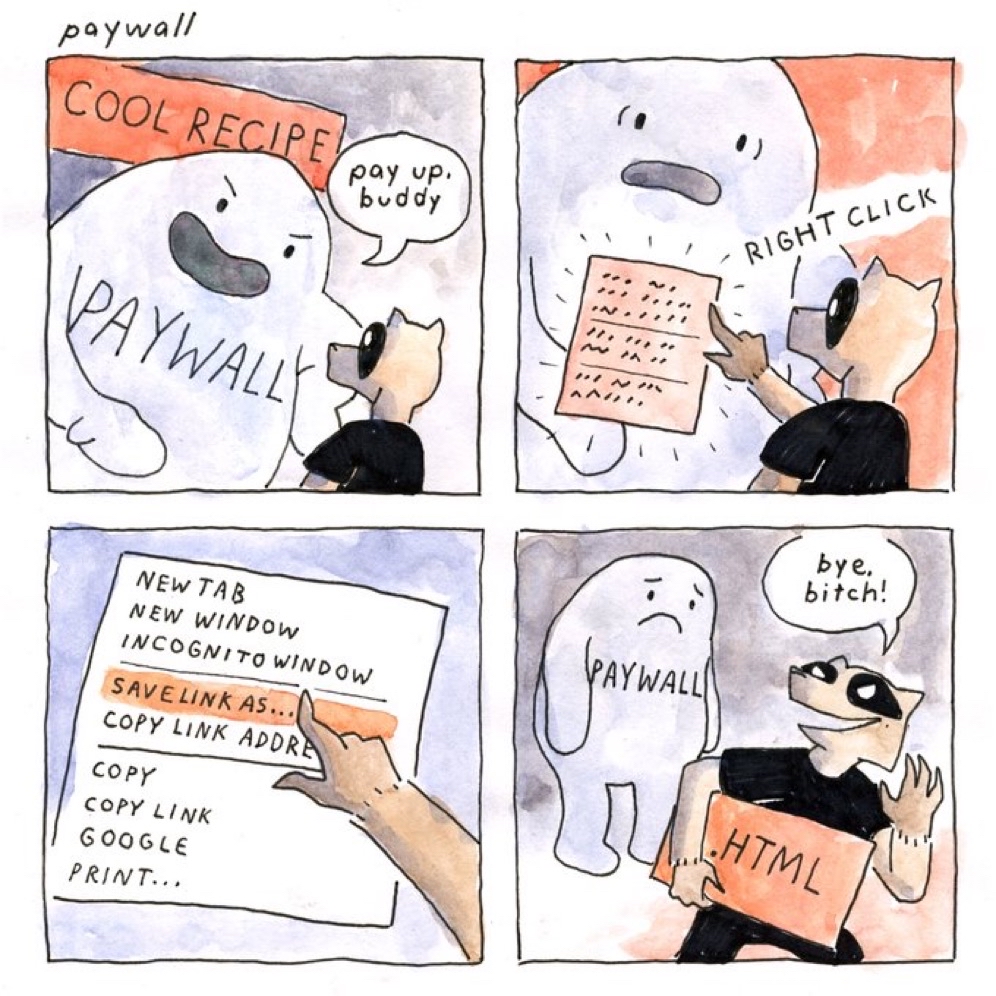 paywall
COOL RECIPE
pay up,
buddy
PAYWALL
RIGHT CLICK
NEW TAB
NEW WINDOW
INCOGNITO WINDOW
SAVE LINK AS...
COPY LINK ADDRE
COPY
COPY LINK
GOOGLE
PRINT...
bye,
bitch!
PAYWALL
.HTML